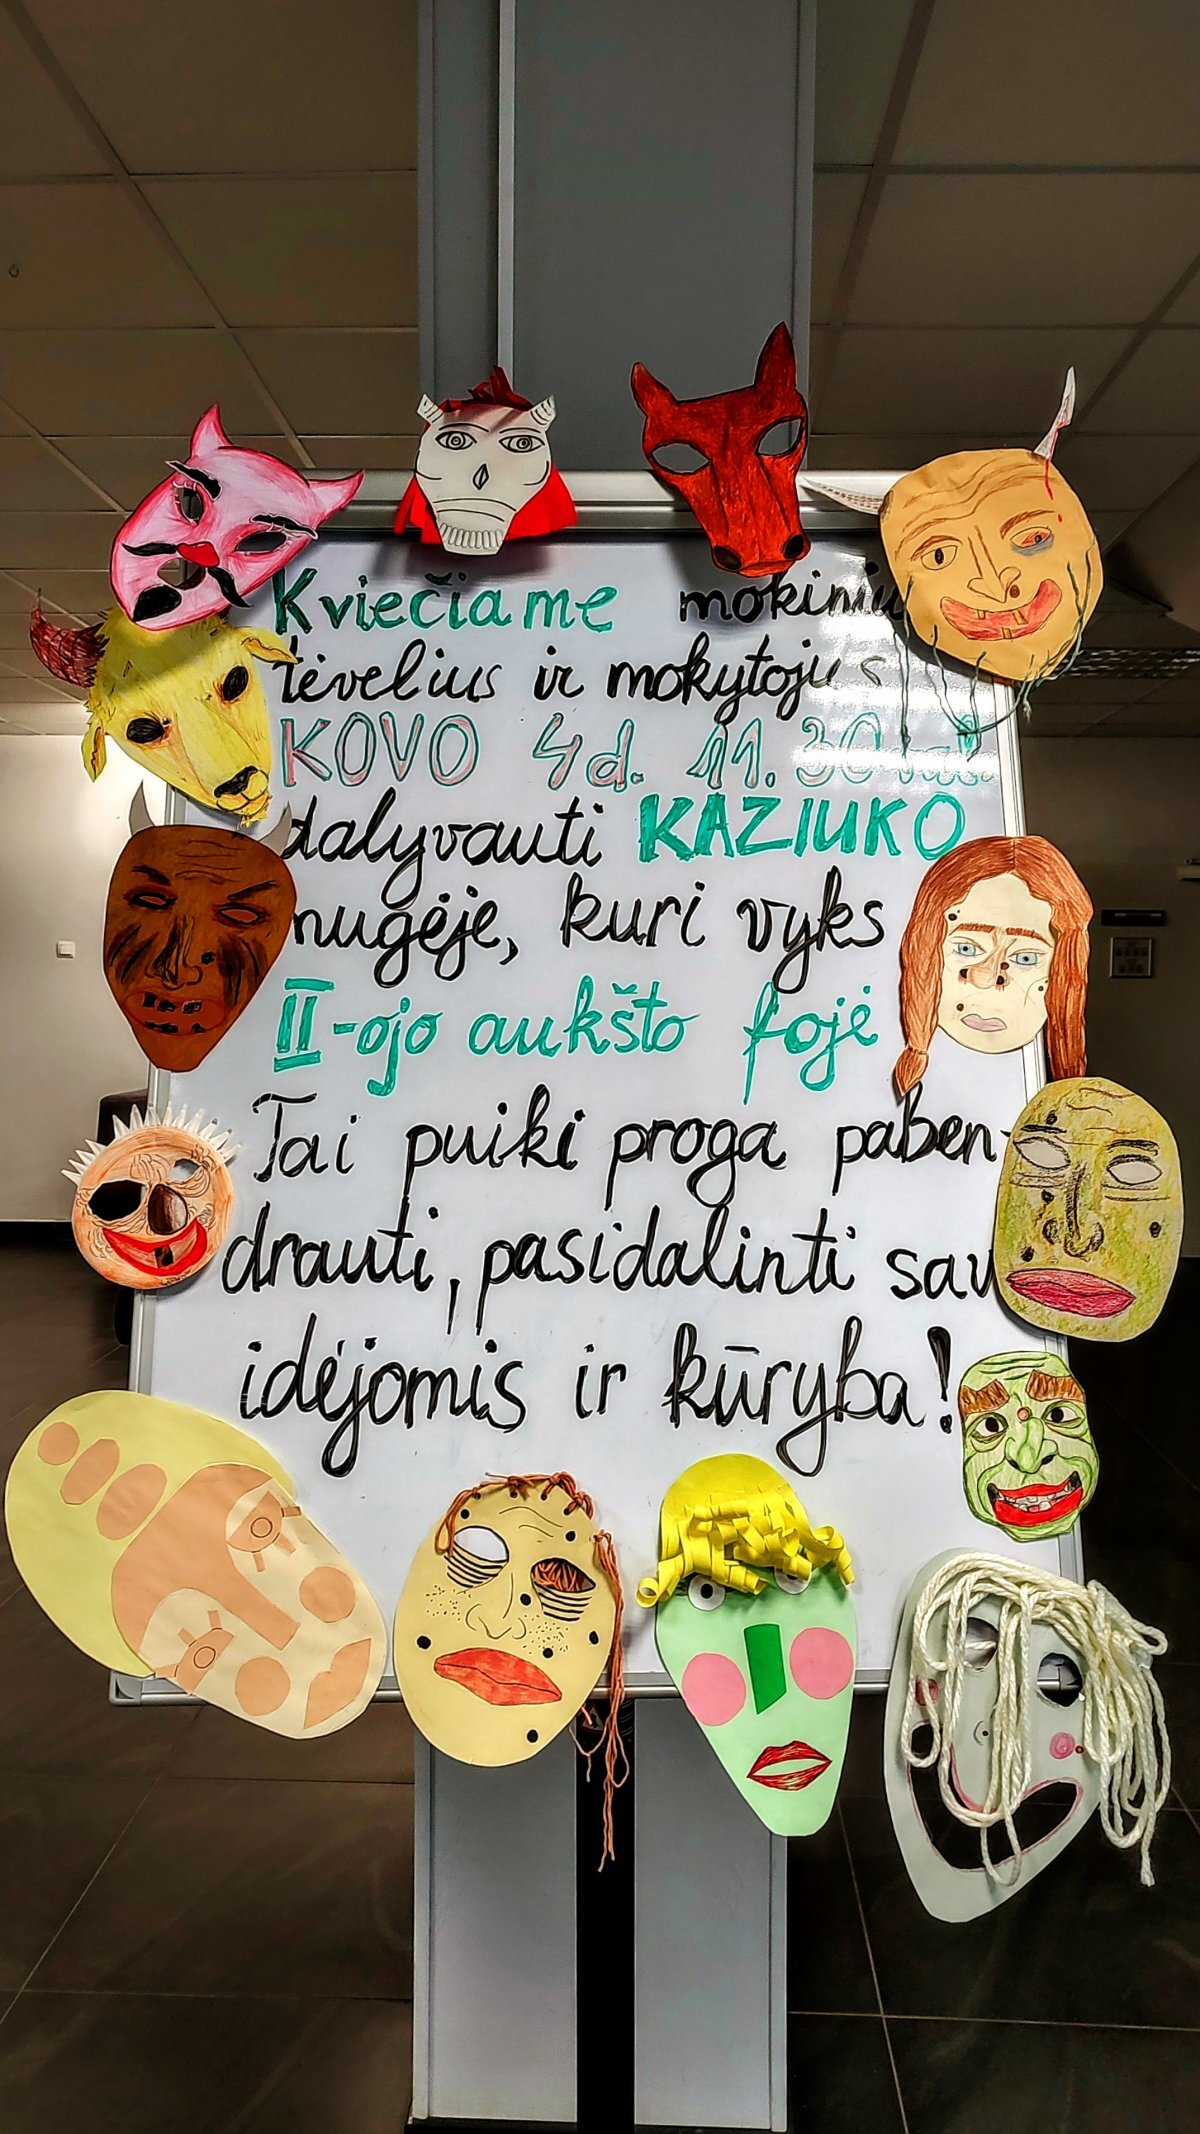 Kviečiame mokinių
tėvelius ir mokytojus
KOVO 4d. 11.30 val.
dalyvauti KAZIUKO
mugėje, kuri vyks
II-ojo aukšto fojė
Tai puiki proga paben-
drauti, pasidalinti sav
idėjomis ir kūryba!